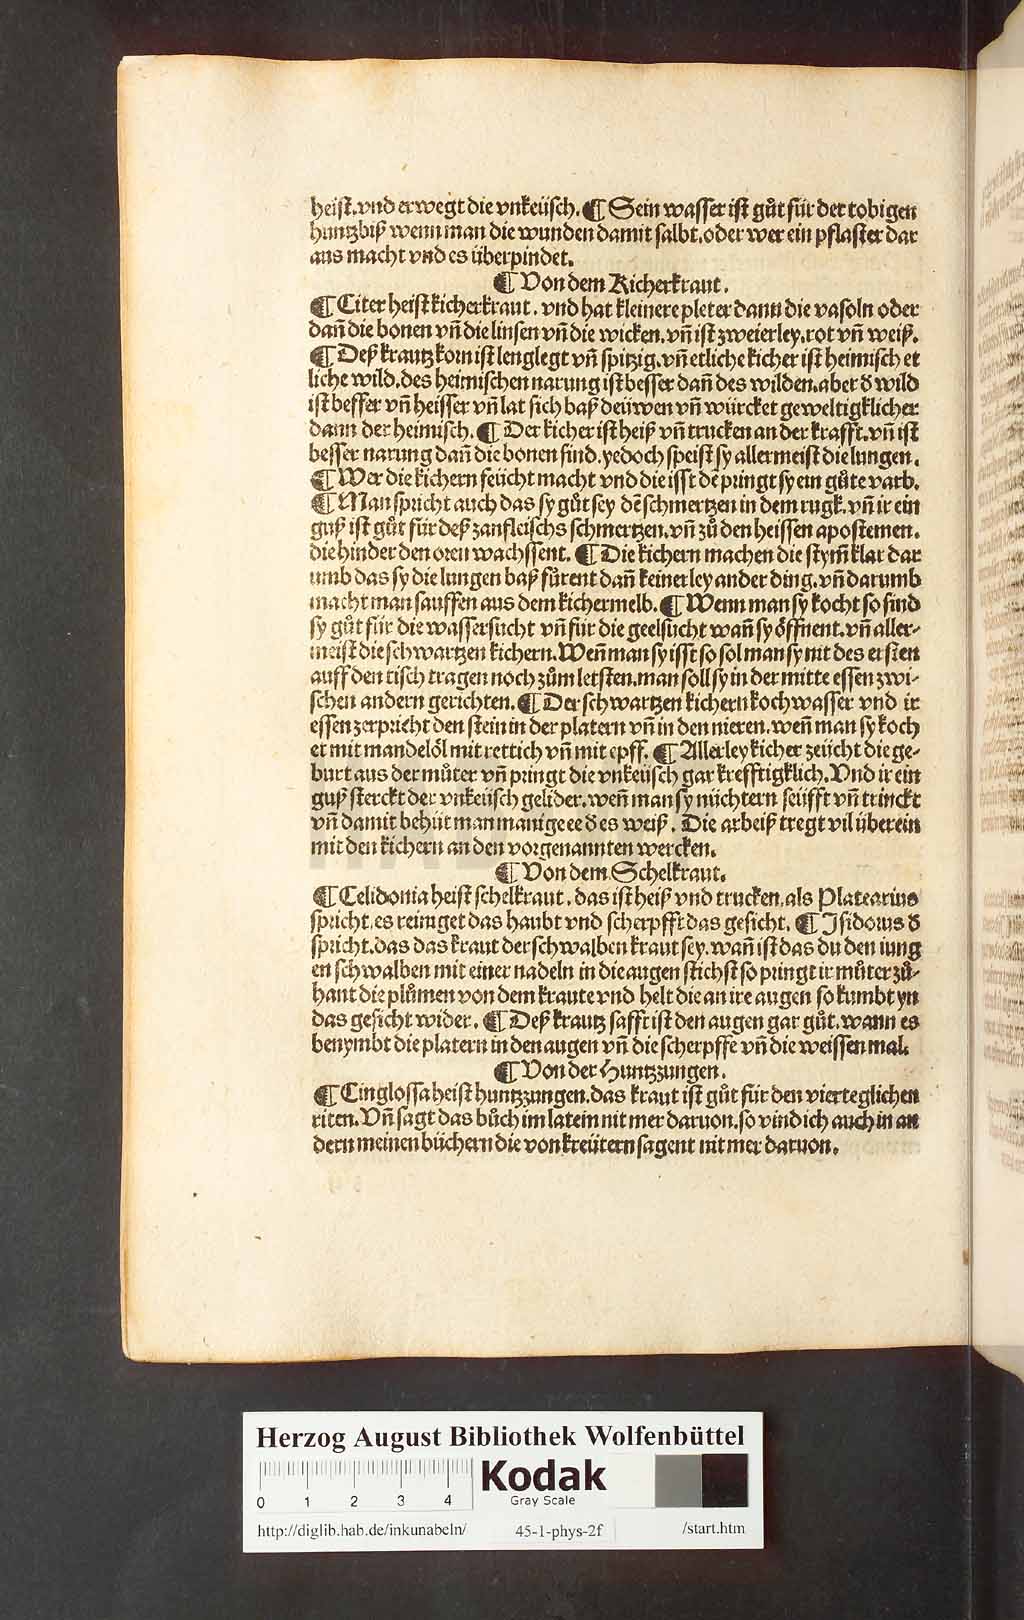 heist. vnd erwegt die vnkeüsch. ¶ Sein wasser ist gůt für der tobigen
huntzbiß wenn man die wunden damit salbt. oder wer ein pflaster dar
aus macht vnd es überpindet.
¶ Von dem Kicherkraut.
¶ Citer heist kicherkraut. vnd hat kleinere pleter dann die vasoln oder
dañ die bonen vñ die linsen vñ die wicken. vñ ist zweierley. rot vñ weiß.
¶ Deß krautz korn ist lenglegt vñ spitzig. vñ etliche kicher ist heimisch et
liche wild. des heimischen narung ist besser dañ des wilden. aber d̕ wild
ist besser vñ heisser vñ lat sich baß deüwen vñ würcket geweltigklicher
dann der heimisch. ¶ Der kicher ist heiß vñ trucken an der krafft. vñ ist
besser narung dañ die bonen sind. yedoch speist sy allermeist die lungen.
¶ Wer die kichern feücht macht vnd die isst dē pringt sy ein gůte varb.
¶ Man spricht auch das sy gůt sey dē schmertzen in dem rugk. vñ ir ein
guß ist gůt für deß zanfleischs schmertzen. vñ zů den heissen apostemen.
die hinder den oren wachssent. ¶ Die kichern machen die stym̄ klar dar
umb das sy die lungen baß fůrent dañ keinerley ander ding. vñ darumb
macht man sauffen aus dem kichermelb. ¶ Wenn man sy kocht so sind
sy gůt für die wassersucht vñ für die geelsucht wañ sy öffnent. vñ aller-
meist die schwartzen kichern. Weñ man sy isst so sol man sy nit des ersten
auff den tisch tragen noch zům letsten. man soll sy in der mitte essen zwi-
schen andern gerichten. ¶ Der schwartzen kichern kochwasser vnd ir
essen zerpricht den stein in der platern vñ in den nieren. weñ man sy koch
et mit mandelöl mit rettich vñ mit epff. ¶ Allerley kicher zeücht die ge-
burt aus der můter vñ pringt die vnkeüsch gar krefftigklich. Vnd ir ein
guß sterckt der vnkeüsch gelider. weñ man sy nüchtern seüfft vñ trinckt
vñ damit behüt man manige ee d̕es weiß. Die arbeiß tregt vil überein
mit den kichern an den vorgenannten wercken.
¶ Von dem Schelkraut.
¶ Celidonia heist schelkraut. das ist heiß vnd trucken. als Platearius
spricht. es reiniget das haubt vnd scherpfft das gesicht. ¶ Isidorus d̕
spricht. das das kraut der schwalben kraut sey. wañ ist das du den iung
en schwalben mit einer nadeln in die augen stichst so pringt ir můter zů-
hant die plůmen von dem kraute vnd helt die an ire augen so kumbt yn
das gesicht wider. ¶ Deß krautz safft ist den augen gar gůt. wann es
benymbt die platern in den augen vñ die scherpffe vñ die weissen mal.
¶ Von der Huntzzungen.
¶ Cinglossa heist huntzzungen. das kraut ist gůt für den vierteglichen
riten. Vñ sagt das bůch im latein nit mer daruon. so vind ich auch in an
dern meinen büchern die von kreütern sagent nit mer daruon.
Herzog August Bibliothek Wolfenbüttel
0 1 2 3 4
Kodak
Gray Scale
http://diglib.hab.de/inkunabeln/ 45-1-phys-2f /start.htm